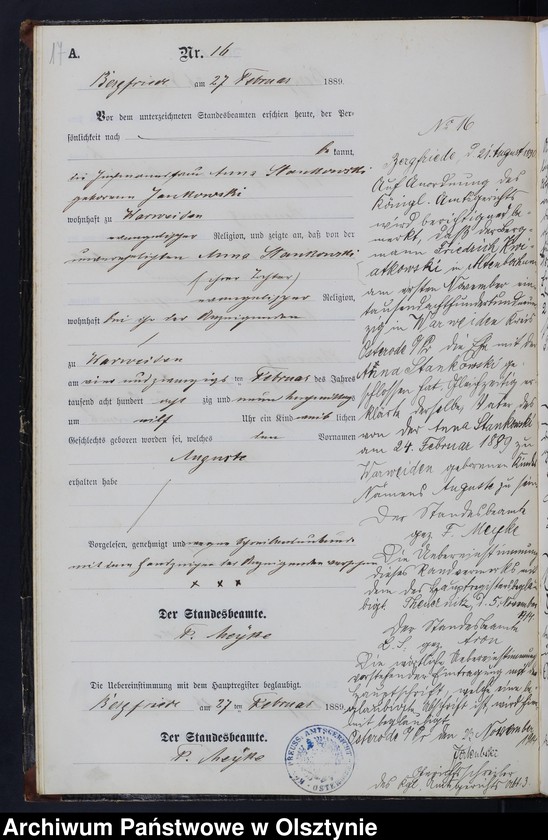 17
A.
Nr. 16
Bergfriede am 27 Februar 1889.
Vor dem unterzeichneten Standesbeamten erschien heute, der Per-
sönlichkeit nach
be kannt,
die Frau Anna Stankowski
geborene Jankowski
wohnhaft zu Warweiden
evangelischer Religion, und zeigte an, daß von der
unverehelichten Anna Stankowski
(ihrer Tochter)
evangelischer Religion,
wohnhaft bei ihr der Anzeigenden
zu Warweiden
am vier und zwanzigsten Februar des Jahres
tausend acht hundert acht zig und neun Vormittags
um elf Uhr ein Kind weib lichen
Geschlechts geboren worden sei, welches den Vornamen
Auguste
erhalten habe
Vorgelesen, genehmigt und wegen Schreibensunkunde
mit dem Handzeichen der Anzeigenden versehen
x x x
Der Standesbeamte.
F. Meyke
Die Uebereinstimmung mit dem Hauptregister beglaubigt.
Bergfriede am 27 ten Februar 1889
Der Standesbeamte.
F. Meyke
No 16
Bergfriede, d. 21. August
Auf Anordnung des
Königl. Amtsgerichts
wird berichtigend be-
merkt, daß der Berg-
mann Friedrich Kwi-
atkowski in Altenbochum
am ersten November ein-
tausendachthundertneun
zig in Warweiden Kreis
Osterode O/Pr die Ehe mit der
Anna Stankowski ge-
schlossen hat. Gleichzeitig er-
klärte derselbe, Vater des
von der Anna Stankowski
am 24. Februar 1889 zu
Warweiden geborenen Kindes
Namens Auguste zu sein
Der Standesbeamte
gez F. Meyke
Die Uebereinstimmung
dieses Randvermerks mit
dem des Hauptregisters beglau-
bigt. 5. November
Der Standesbeamte
L.S. gez Aron
Die Uebereinstimmung
vorstehender Eintragung mit der
Hauptschrift, welche eine be-
glaubigte Abschrift ist, wird hier-
mit beglaubigt
Osterode O/Pr den November
Gerichtsschreiber
des Kgl. Amtsgerichts Abt 3
KÖN. PREUSS. AMTSGERICHT
OSTERODE
Archiwum Państwowe w Olsztynie